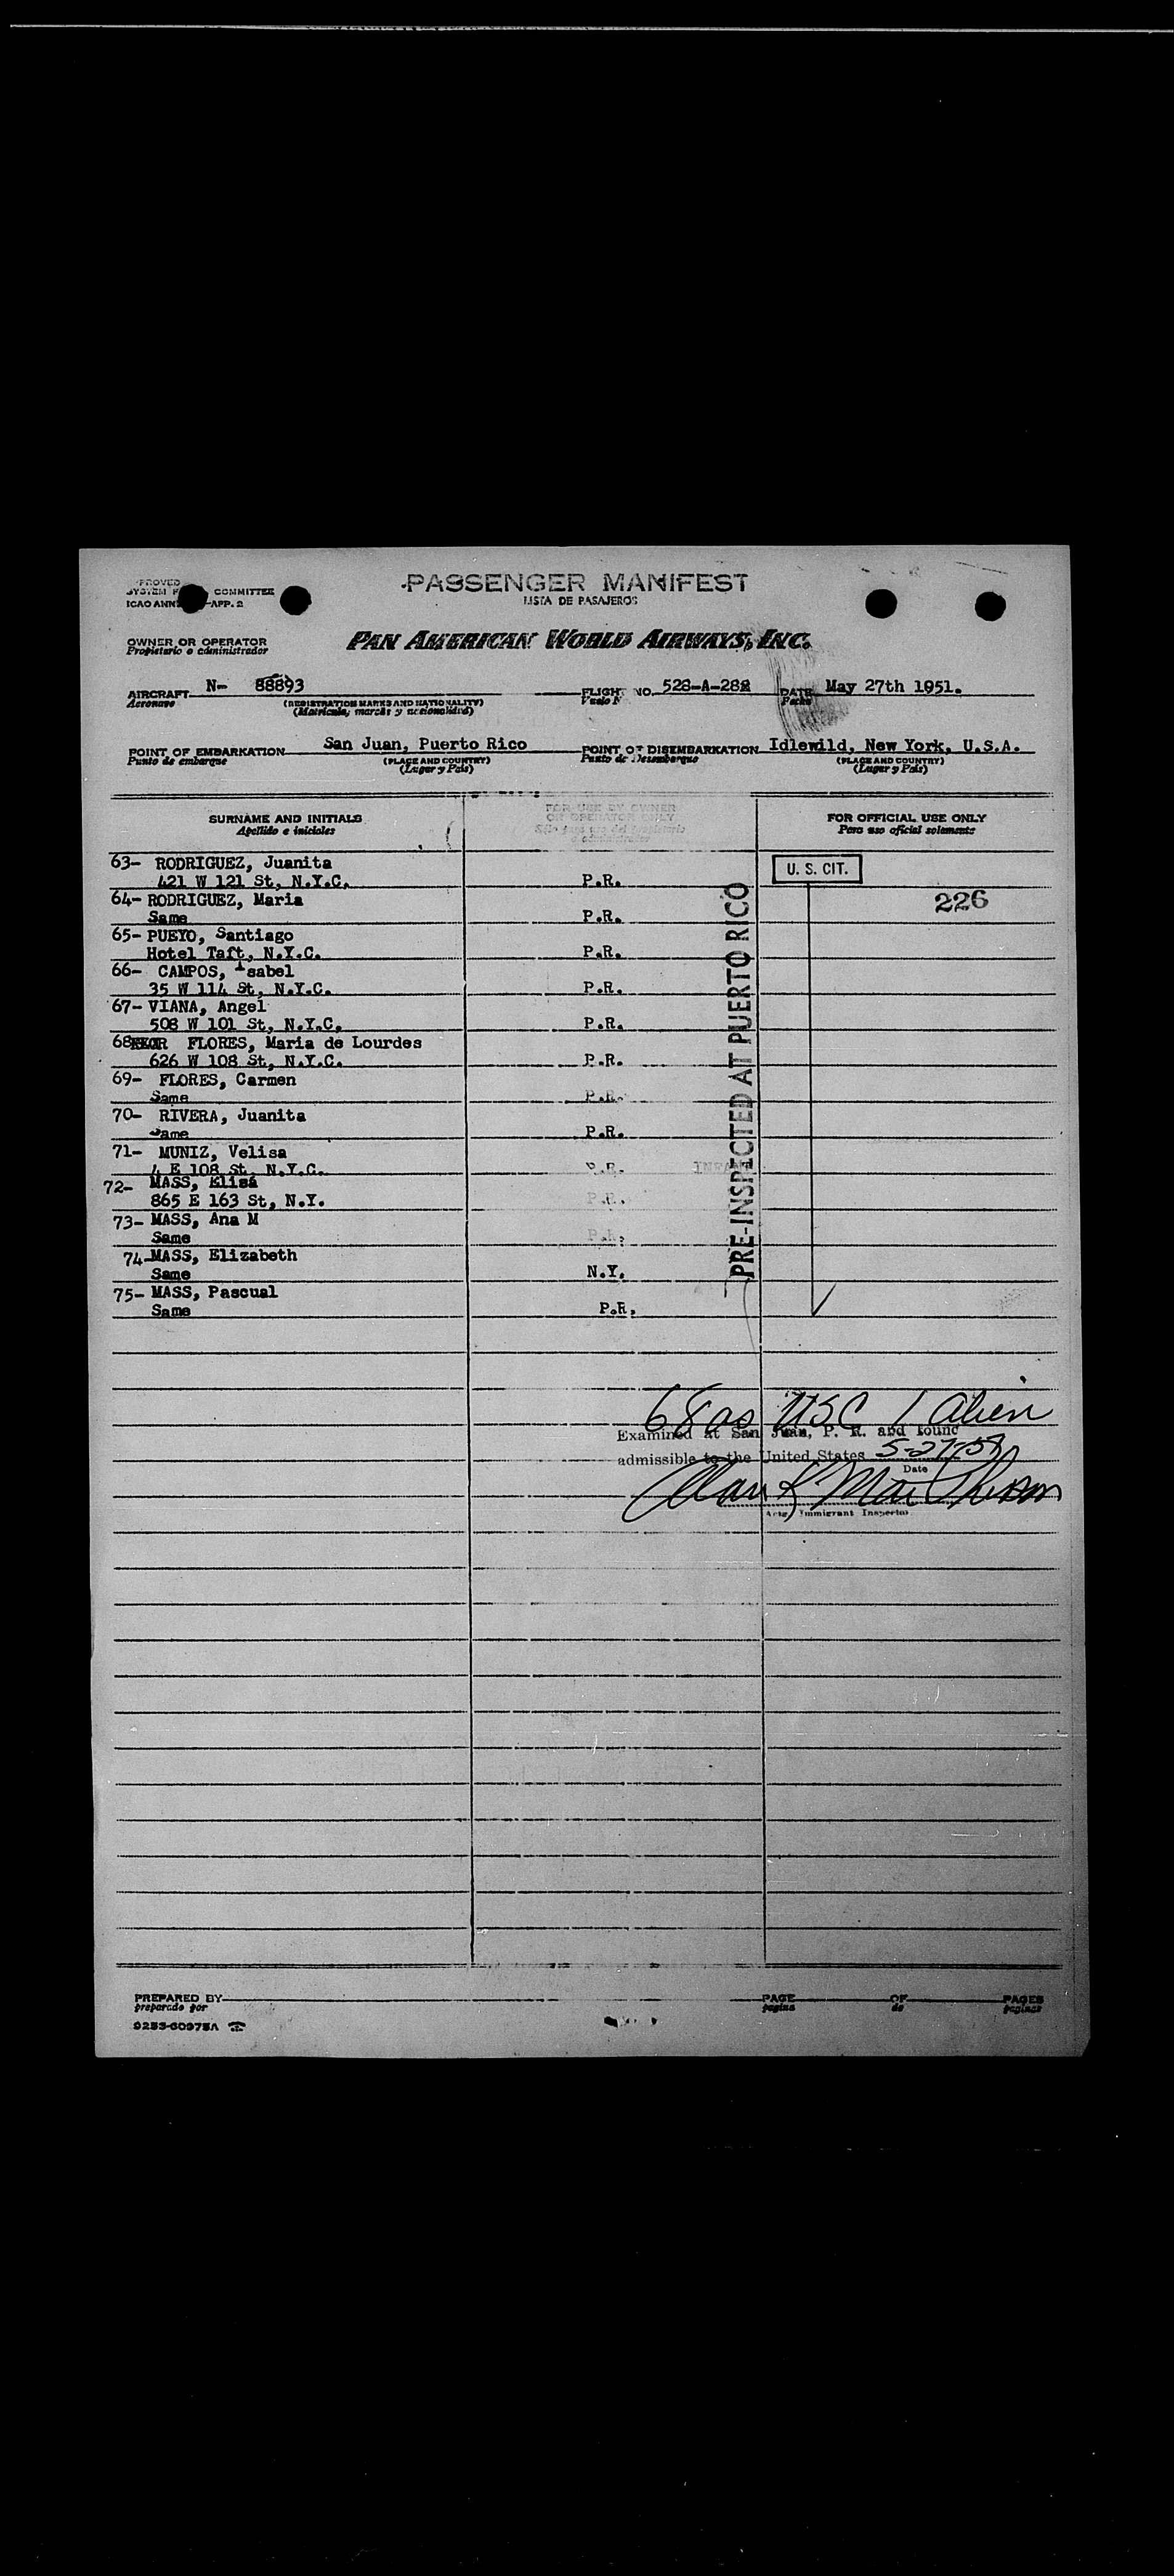 PASSENGER MANIFEST
LISTA DE PASAJEROS
COMMITTEE
ICAO ANN APP. 2
OWNER OR OPERATOR
Propietario o administrador
PAN AMERICAN WORLD AIRWAYS, INC.
AIRCRAFT N- 88893 FLIGHT NO. 528-A-288 DATE May 27th 1951.
Aeronave (REGISTRATION MARKS AND NATIONALITY) Vuelo Fecha
(Matricula, marcas y nacionalidad)
POINT OF EMBARKATION San Juan, Puerto Rico POINT OF DISEMBARKATION Idlewild, New York, U.S.A.
Punto de embarque (PLACE AND COUNTRY) Punto de Desembarque (PLACE AND COUNTRY)
(Lugar y Pais) (Lugar y Pais)
SURNAME AND INITIALS FOR USE BY OWNER OR OPERATOR ONLY FOR OFFICIAL USE ONLY
Apellido e iniciales Para uso oficial solamente
63- RODRIGUEZ, Juanita
421 W 121 St, N.Y.C. P.R. U. S. CIT.
64- RODRIGUEZ, Maria 226
Same P.R.
65- PUEYO, Santiago
Hotel Taft, N.Y.C. P.R.
66- CAMPOS, Isabel
35 W 114 St, N.Y.C. P.R.
67- VIANA, Angel
508 W 101 St, N.Y.C. P.R.
68 FLORES, Maria de Lourdes
626 W 108 St, N.Y.C. P.R.
69- FLORES, Carmen
Same P.R.
70- RIVERA, Juanita
Same P.R.
71- MUNIZ, Velisa
4 E 108 St, N.Y.C. P.R.
72- MASS, Elisa
865 E 163 St, N.Y. P.R.
73- MASS, Ana M
Same P.R.
74- MASS, Elizabeth
Same N.Y.
75- MASS, Pascual
Same P.R.
PRE-INSPECTED AT PUERTO RICO
68 as USC 1 Alien
Examined at San Juan, P. R. and found
admissible to the United States
Date
Immigrant Inspector
PREPARED BY PAGE OF PAGES
preparado por pagina de paginas